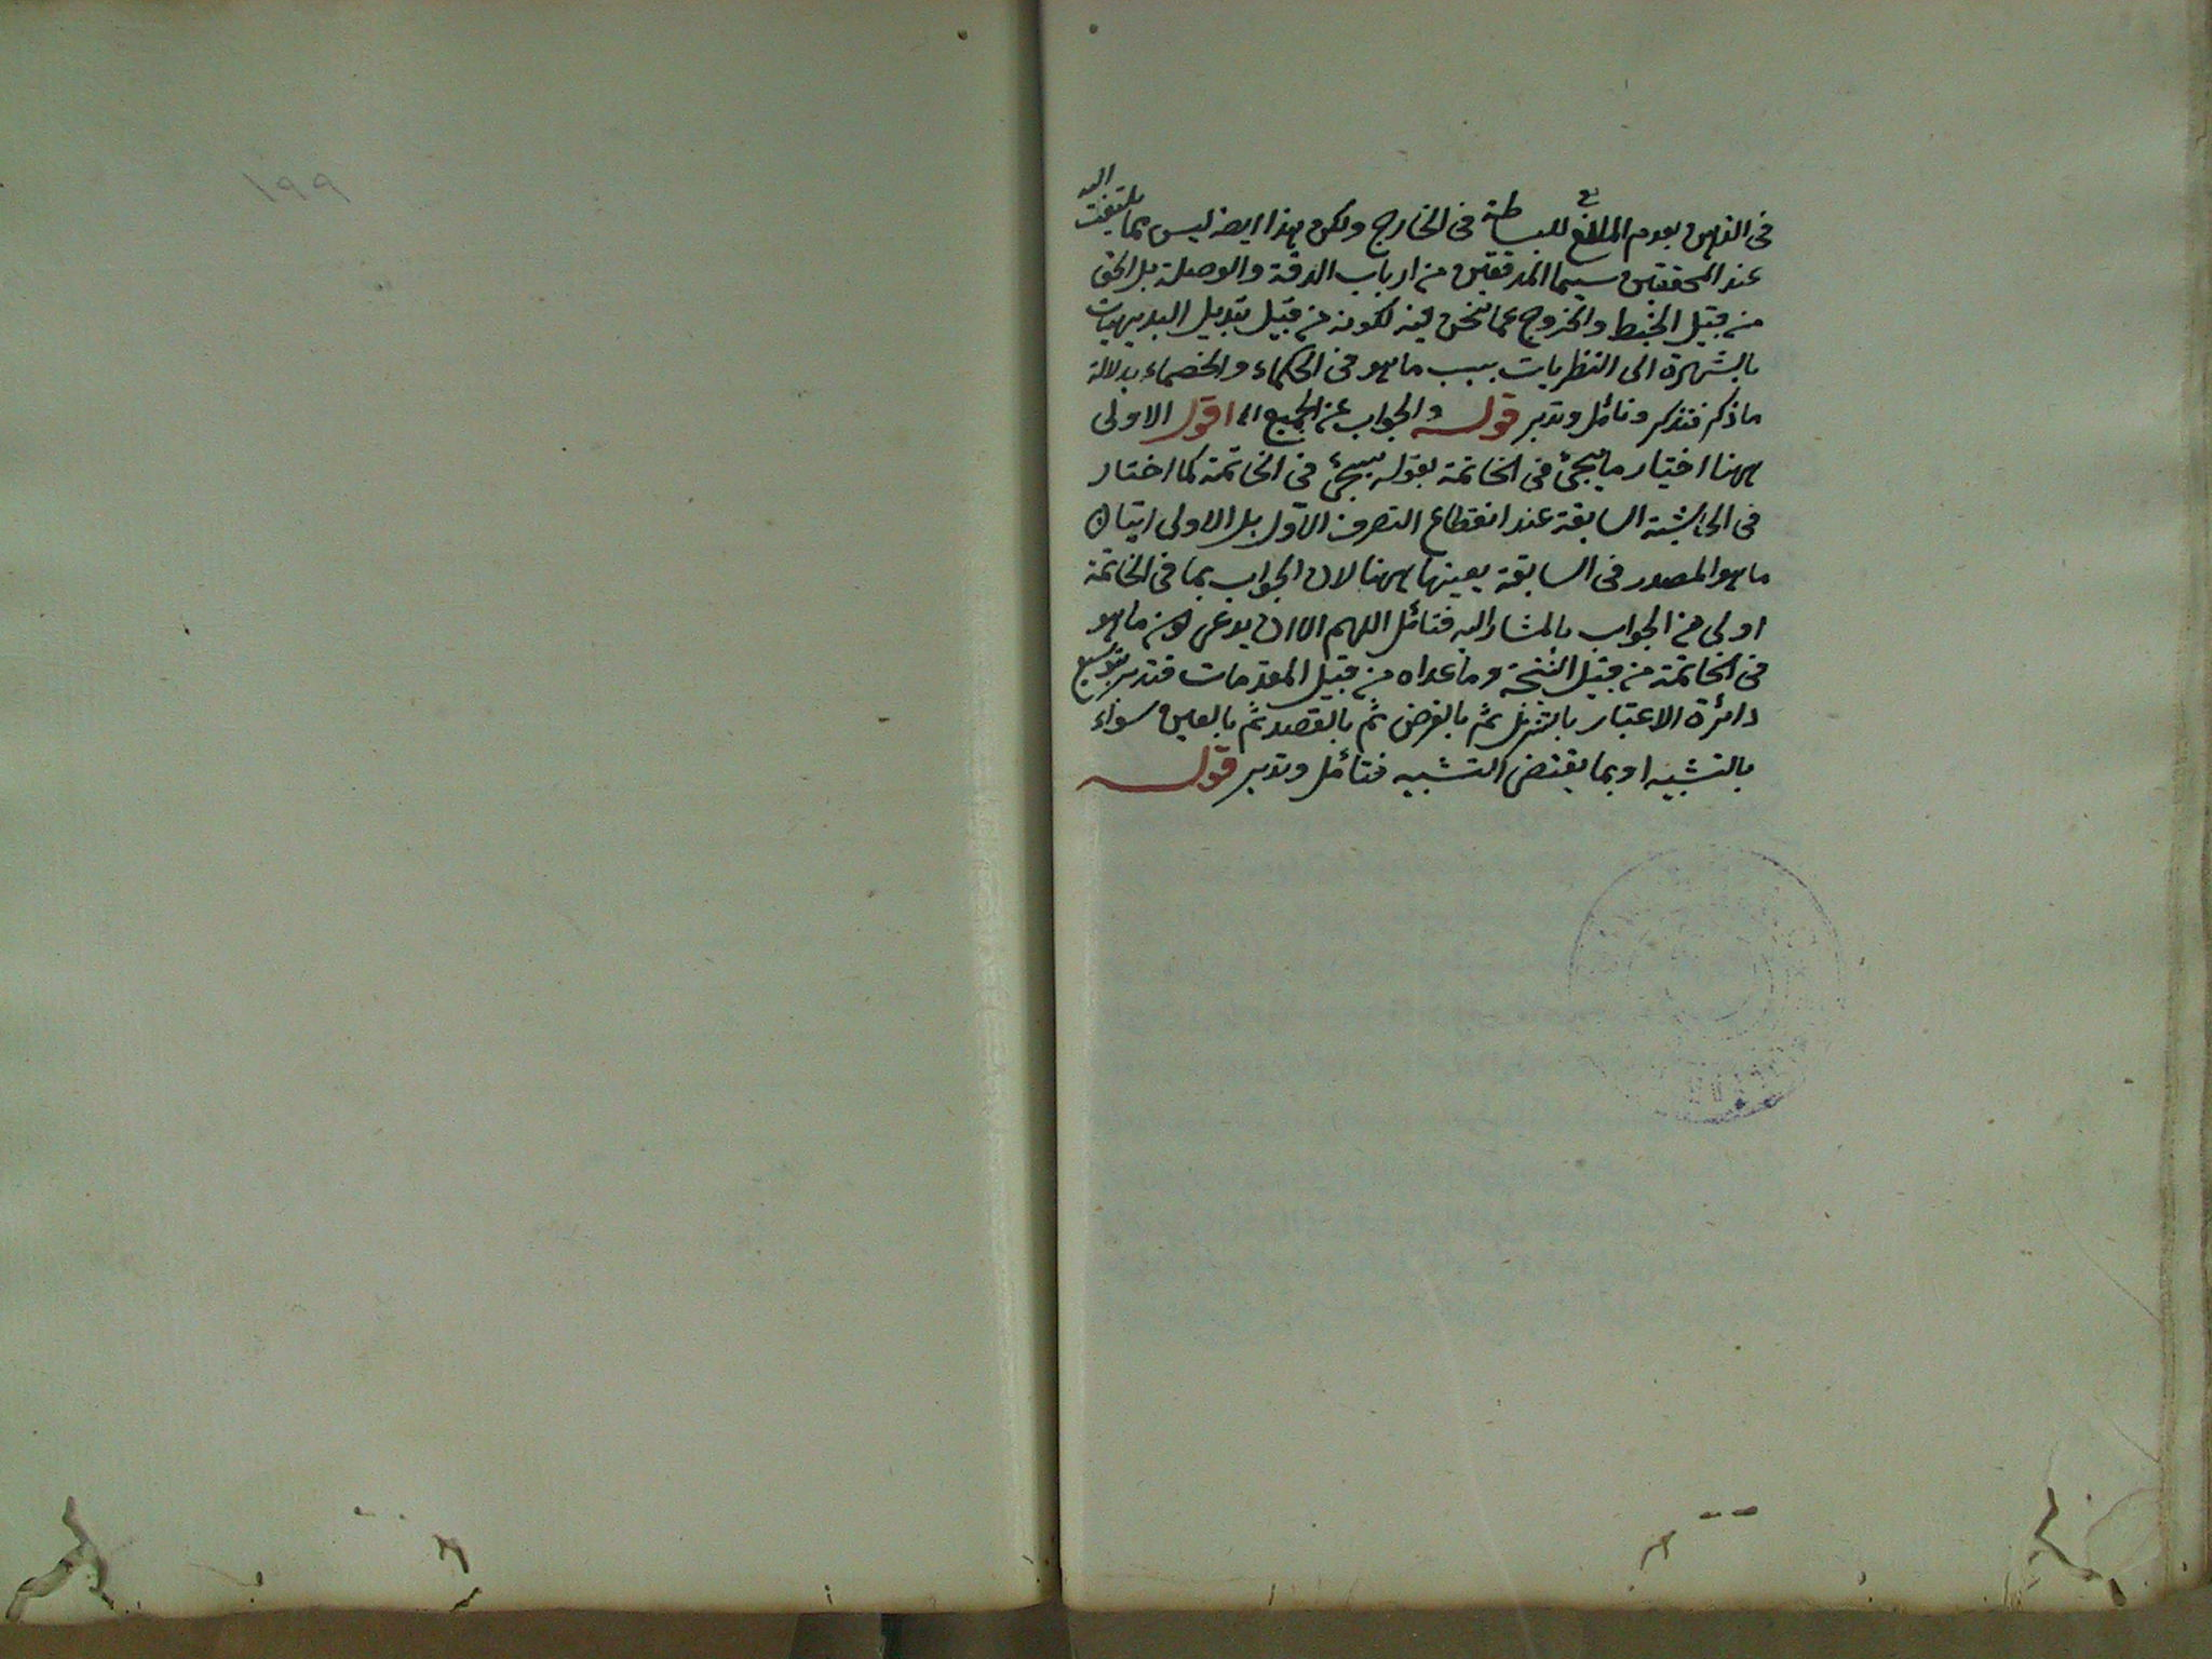 في الذهن بعدم المانع للبساطة في الخارج ولكن هذا ايضا ليس مما يلتفت اليه
عند المحققين سيما المدققين من ارباب الدقة والوصلة بل الحق
من قبيل الخبط والخروج عما نحن فيه لكونه من قبيل تبديل البديهيات
بالشهرة الى النظريات بسبب ما هو في الحكماء والخصماء بدلالة
ما ذكر فتذكر وتأمل وتدبر قوله والجواب عن الجميع اه اقول الاولى
ههنا اختيار ما يجئ في الخاتمة بقوله سيجئ في الخاتمة كما اختار
في الحاشية السابقة عند انقطاع التصرف الاول بل الاولى اتيان
ما هو المصدر في السابقة بعينها ههنا لان الجواب بما في الخاتمة
اولى من الجواب بالمشار اليه فتأمل اللهم الا ان يدعى كون ما هو
في الخاتمة من قبيل النتيجة وما عداه من قبيل المقدمات فتدبر بتوسيع
دائرة الاعتبار بالتنزل ثم بالفرض ثم بالقصد ثم بالعين سواء
بالتشبيه او بما يقتضى التشبيه فتأمل وتدبر قوله
١٩٩